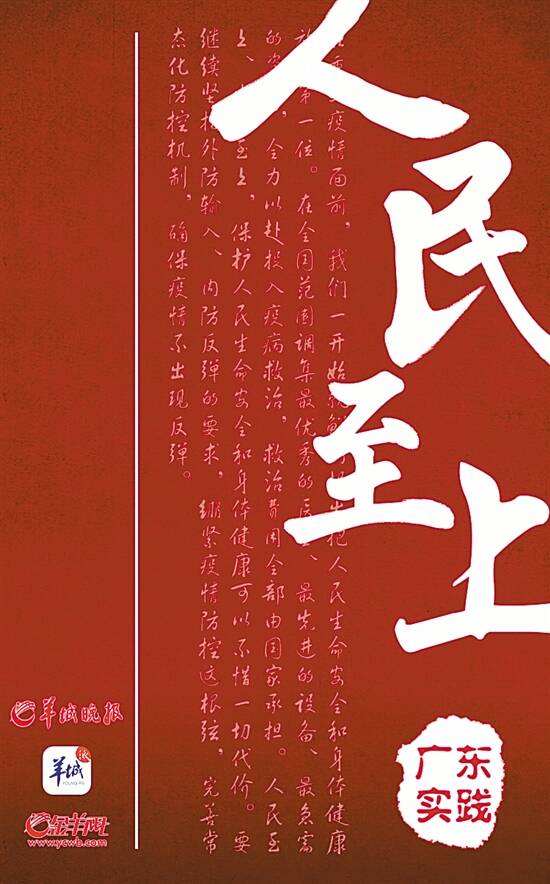 人民至上
疫情面前，我们一开始就鲜 把人民生命安全和身体健康
放 第一位。在全国范围调集最优秀的医 、最先进的设备、最急需
的资 ，全力以赴投入疫病救治，救治费用全部由国家承担。人民至
上、 至上，保护人民生命安全和身体健康可以不惜一切代价。要
继续坚持外防输入、内防反弹的要求，绷紧疫情防控这根弦，完善常
态化防控机制，确保疫情不出现反弹。
广东
实践
羊城晚报
羊城派
YOUNG-PAI
金羊网
www.ycwb.com